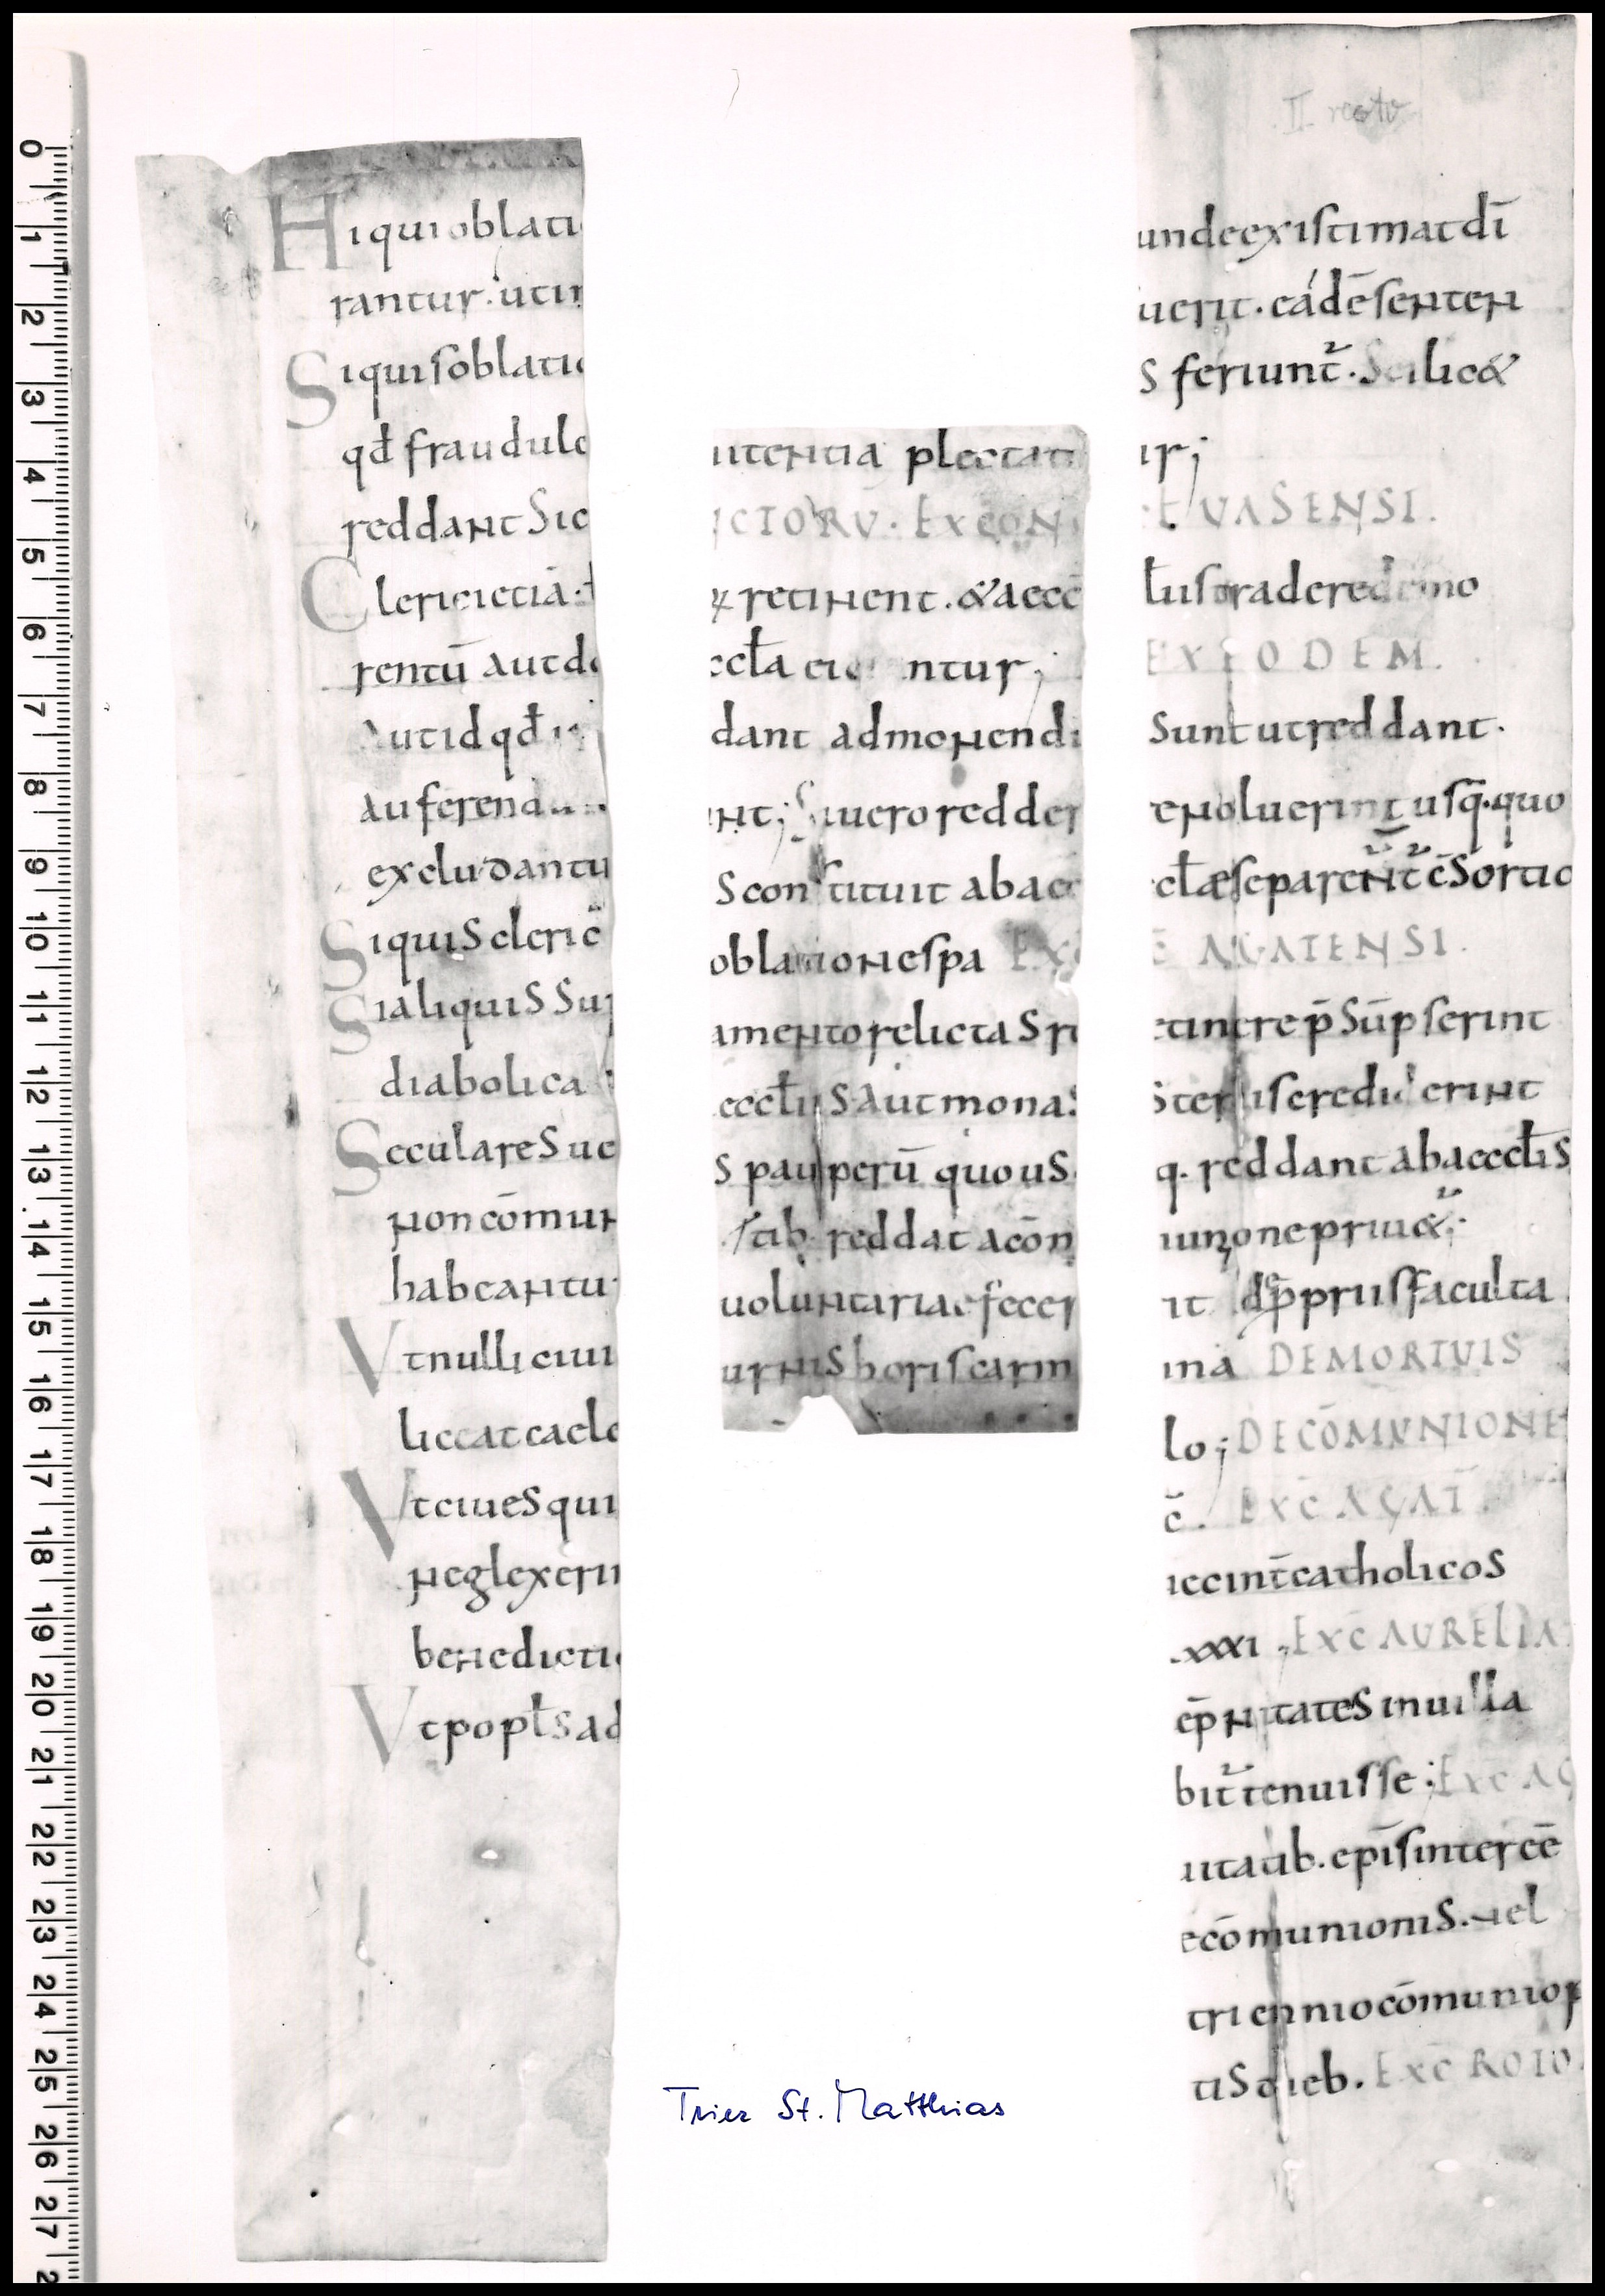 Hiquioblati
rantur. utin
Siquisoblatio
qđ fraudule
reddant Sic
Clericietiā.
rentū autdo
Autid qđ
auferend
excludantu
Siquis cleric̄
Sialiquis Sup
diabolica
Seculares ue
non cōmun
habeantu
Vtnulli ciui
liceat caele
Vtciues qui
neglexerin
benedictio
Vtpopłs ad
ntentia plectat
CTORŪ. EX CON
& retinent. & aecc
eccła
dant admonendi
nt; Siuero redder
S constituit abaec
oblationespa EXC
amento relictaS re
aeccłiiS aut monaS
S pauperū quouS
tib. reddat acōn
uoluntariae fecer
urnis horiscarm
II recto
undeexistimatdī
uerit. eádē senten
S feriunt̄. Scilic&
ur;
E UASENSI.
łustraderedemo
EX EODEM.
Sunt utreddant.
enoluerint usq. quo
cłæ separent̄ c̄ Sortio
Ē AGATENSI.
etinere p̄Sūpserint
Ster iiscrediderint
q. reddant abaeccłiS
iunzonepriu&;
it dp̄priisfaculta
ma DEMORTUIS
lo; DECŌMUNIONE
c̄. EXC̄ AGAT̄.
iecint̄catholicoS
.xxxi. EXC̄ AURELIA
ep̄ntateS inuilla
bit̄tenuisse; EXC̄ AG
uitatib. ep̄īs intercē
ecōmunioniS. uel
triennio cōmunion
tiS dieb. EXC̄ ROTO
Trier St. Matthias